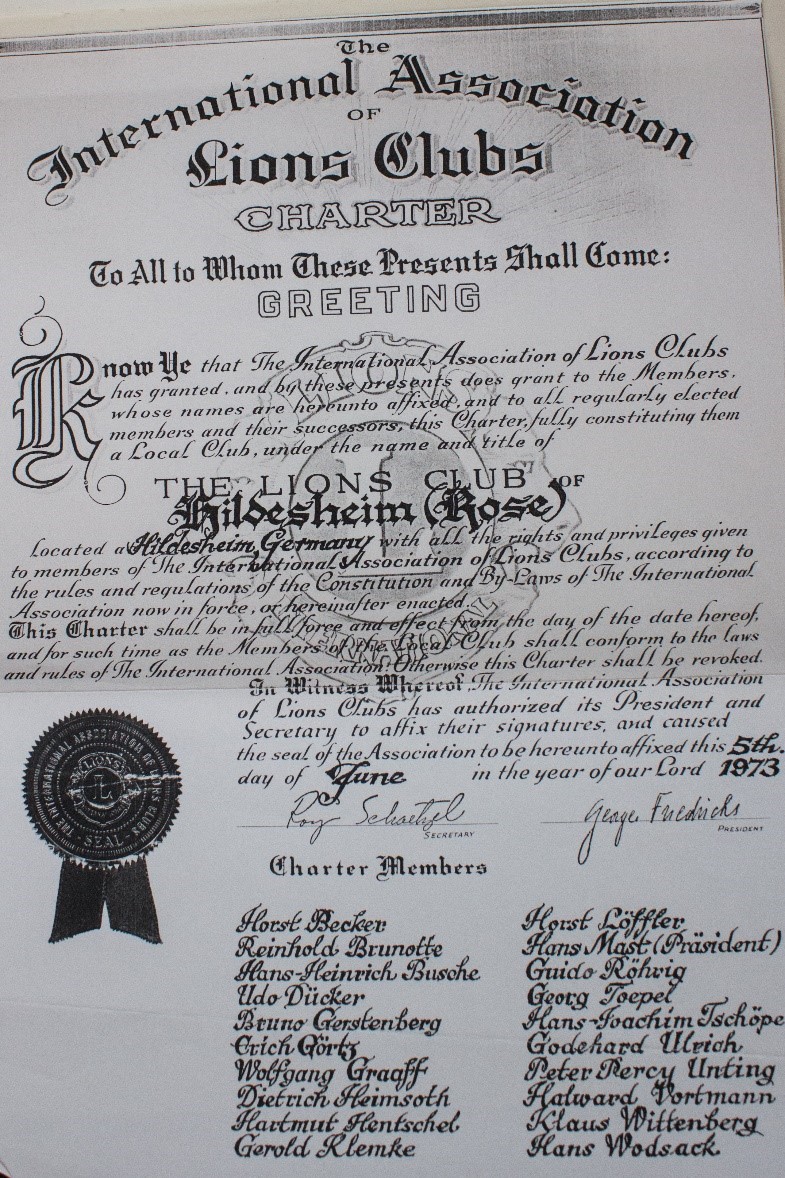 The
International Association
OF
Lions Clubs
CHARTER
To All to Whom These Presents Shall Come:
GREETING
Know Ye that The International Association of Lions Clubs
has granted, and by these presents does grant to the Members,
whose names are hereunto affixed, and to all regularly elected
members and their successors, this Charter, fully constituting them
a Local Club, under the name and title of
THE LIONS CLUB OF
Hildesheim (Rose)
Located a Hildesheim, Germany with all the rights and privileges given
to members of The International Association of Lions Clubs, according to
the rules and regulations of the Constitution and By-Laws of The International
Association now in force, or hereinafter enacted.
This Charter shall be in full force and effect from the day of the date hereof,
and for such time as the Members of the Local Club shall conform to the laws
and rules of The International Association. Otherwise this Charter shall be revoked.
In Witness Whereof, The International Association
of Lions Clubs has authorized its President and
Secretary to affix their signatures, and caused
the seal of the Association to be hereunto affixed this 5th.
day of June in the year of our Lord 1973
Roy Schaetzel George Friedrichs
SECRETARY PRESIDENT
THE INTERNATIONAL ASSOCIATION OF LIONS CLUBS
LIONS
L
SEAL
Charter Members
Horst Becker
Reinhold Brunotte
Hans-Heinrich Busche
Udo Dücker
Bruno Gerstenberg
Erich Görtz
Wolfgang Graaff
Dietrich Heimsoth
Hartmut Hentschel
Gerold Klemke
Horst Löffler
Hans Mast (Präsident)
Guido Röhrig
Georg Toepel
Hans-Joachim Tschöpe
Godehard Ulrich
Peter Percy Unting
Halward Vortmann
Klaus Wittenberg
Hans Wodsack